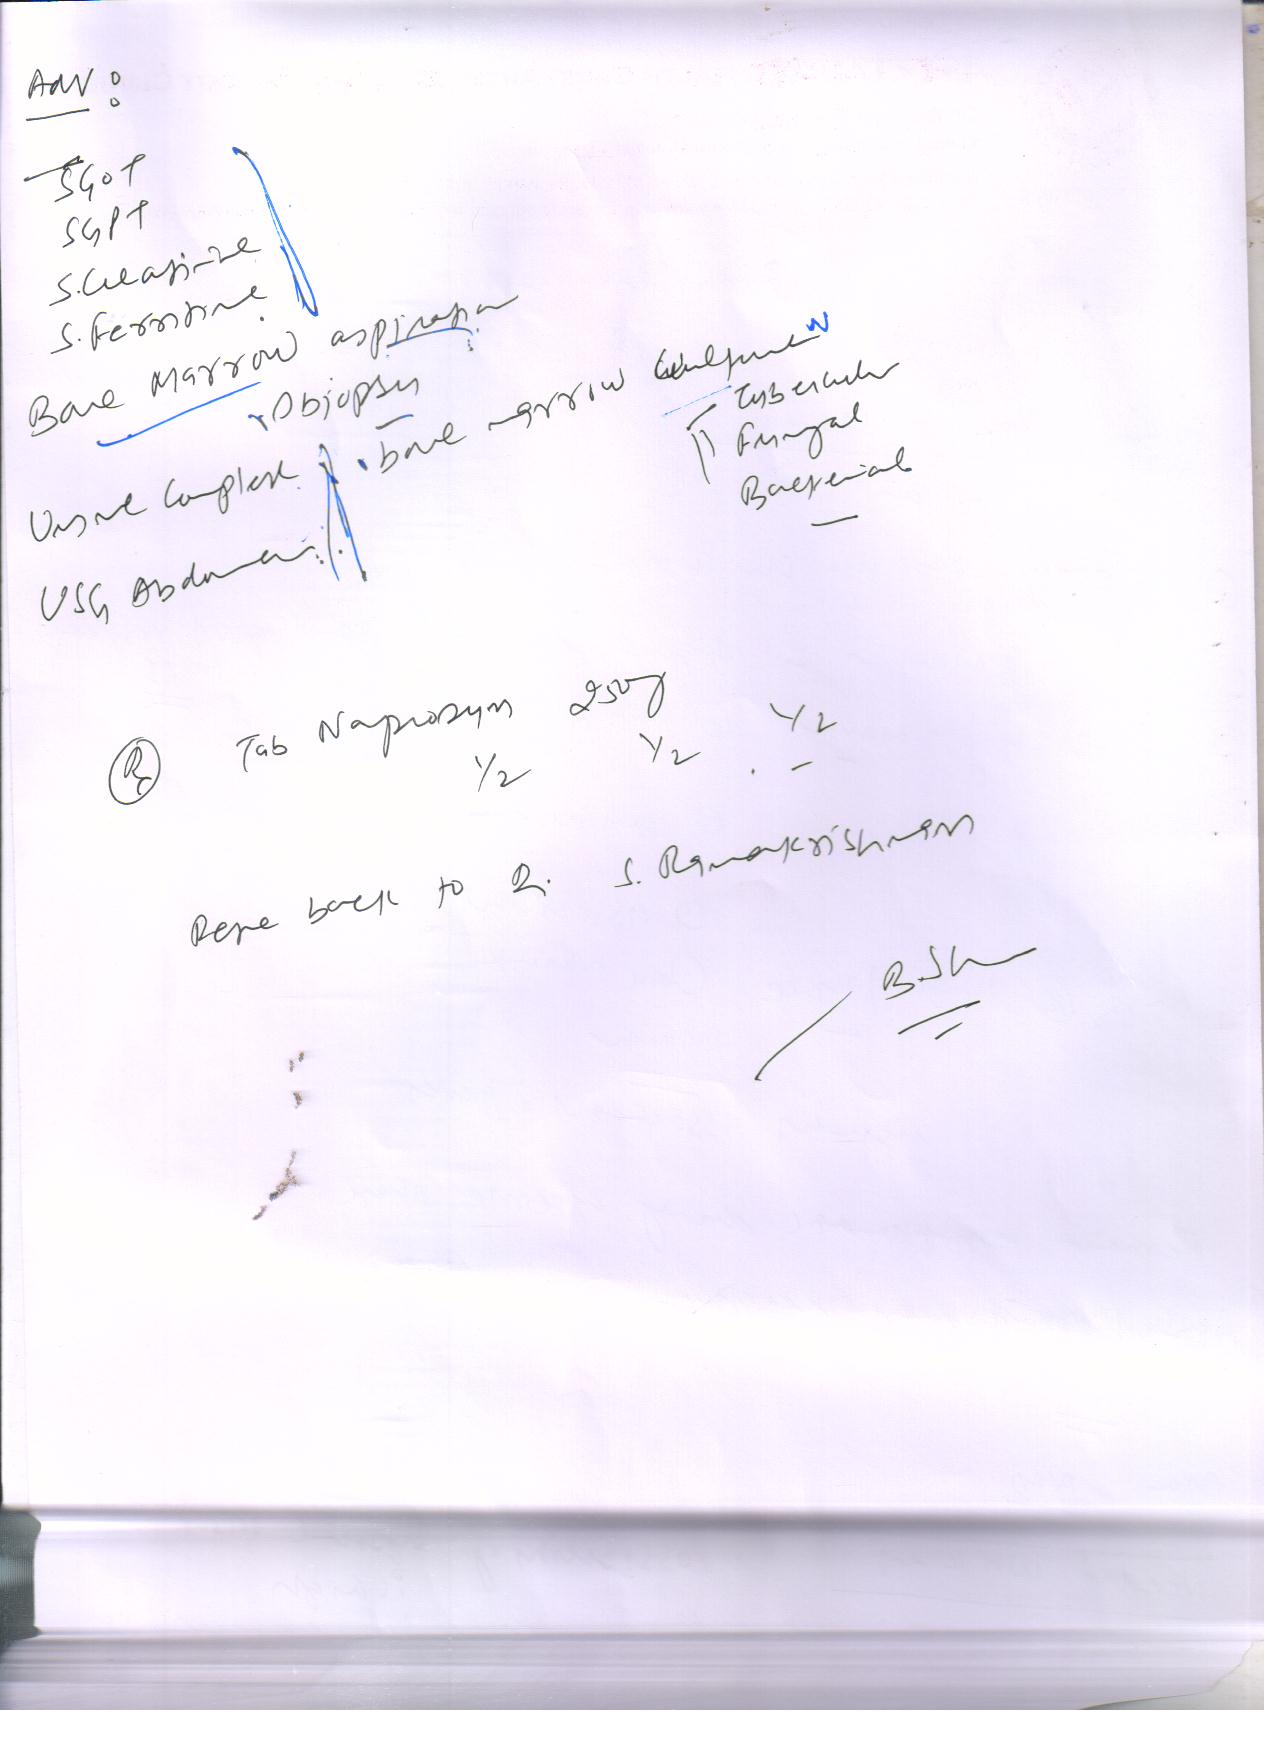 Adv:
SGOT
SGPT
S. Creatinine
S. Ferritine
Bone Marrow aspiration
biopsy
bone marrow culture
Tubercular
Fungal
Bacterial
Urine Complete
USG Abdomen
Rx Tab Naprosyn 250mg
1/2 1/2 1/2
back to Dr. S. Ramakrishnan